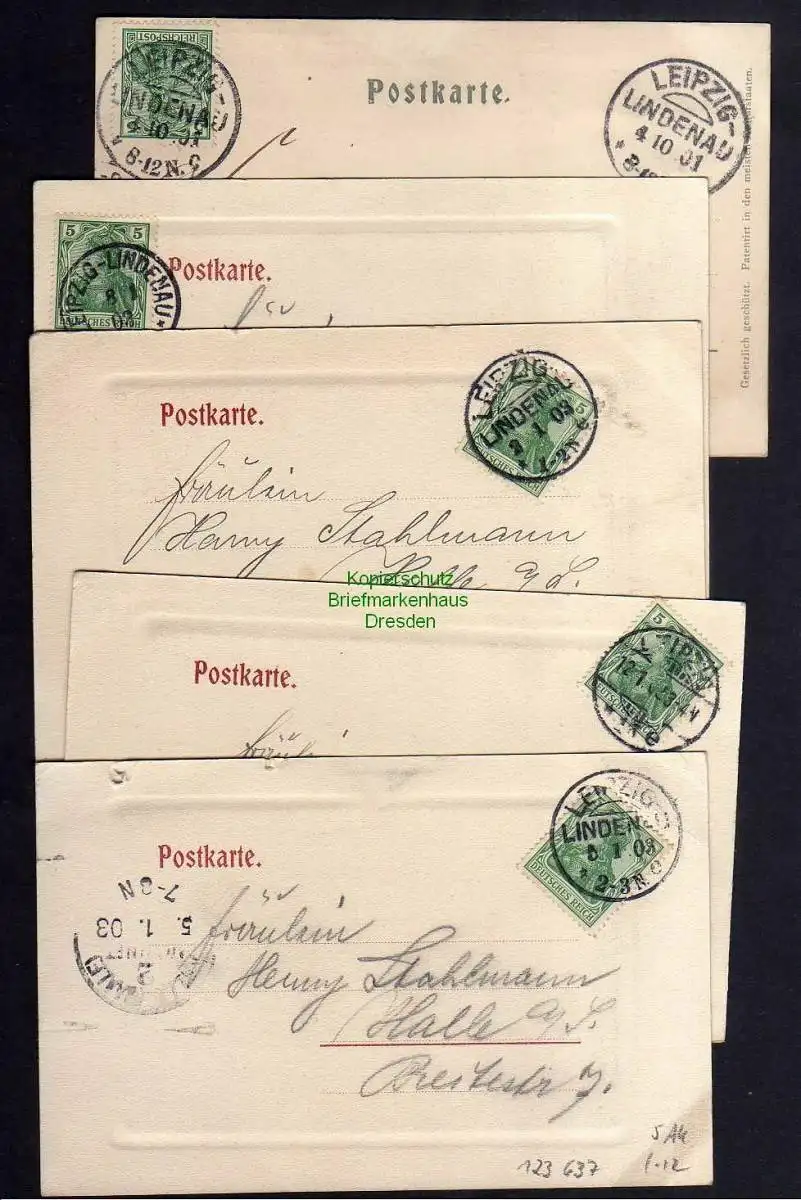 REICHSPOST
LEIPZIG-
LINDENAU
4 10 01
8-12 N. C
Postkarte.
LEIPZIG-
LINDENAU
4 10 01
* 8-12
Gesetzlich geschützt. Patentirt in den meisten
5 5
LEIPZIG-LINDENAU *
8 1
03
DEUTSCHES REICH
Postkarte.
Postkarte.
LEIPZIG-
LINDENAU
1 03
* 1-2 N C
5
DEUTSCHES REICH
Fräulein
Hanny Stahlmann
Halle a/S.
Kopierschutz
Briefmarkenhaus
Dresden
5
LEIPZIG
12. 1.
Postkarte.
Fräulei
LEIPZIG-
LINDEN
1 03
* 2-3 N. C
DEUTSCHES REICH
Postkarte.
7-8 N
5. 1. 03
2
Fräulein
Henny Stahlmann
Halle a/S.
Breitestr 7.
5 Ak
1-12
123 637